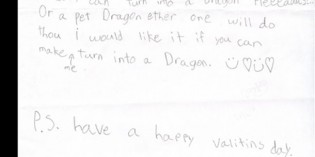 can turn into a dragon Pleeeaas...
Or a pet Dragon ether one will do
thou i would like it if you can
make me turn into a Dragon. ☺♡☺♡
P.S. have a happy valitins day.